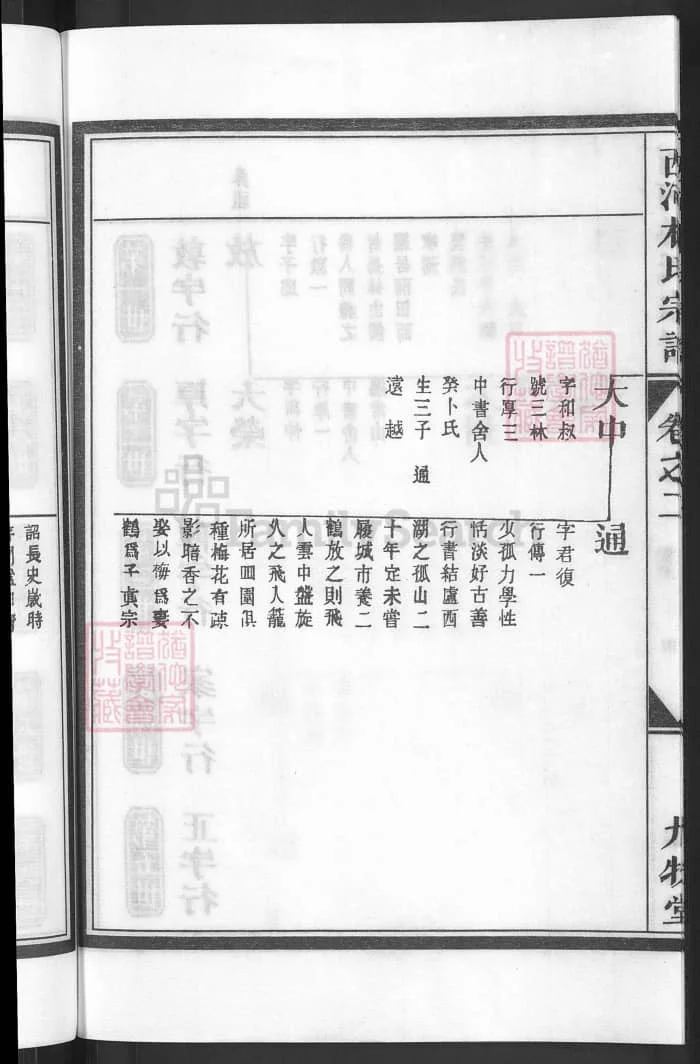 西河林氏宗譜
卷之二
九牧堂
大中
字和叔
號三林
行厚三
中書舍人
癸卜氏
生三子 通
遠 越
通
字君復
行傳一
少孤力學性
恬淡好古善
行書結廬西
湖之孤山二
十年足未嘗
履城市養二
鶴放之則飛
入雲中盤旋
久之飛入籠
所居四園俱
種梅花有疎
影暗香之不
娶以梅爲妻
鶴爲子眞宗
詔長史歲時
FamilySearch